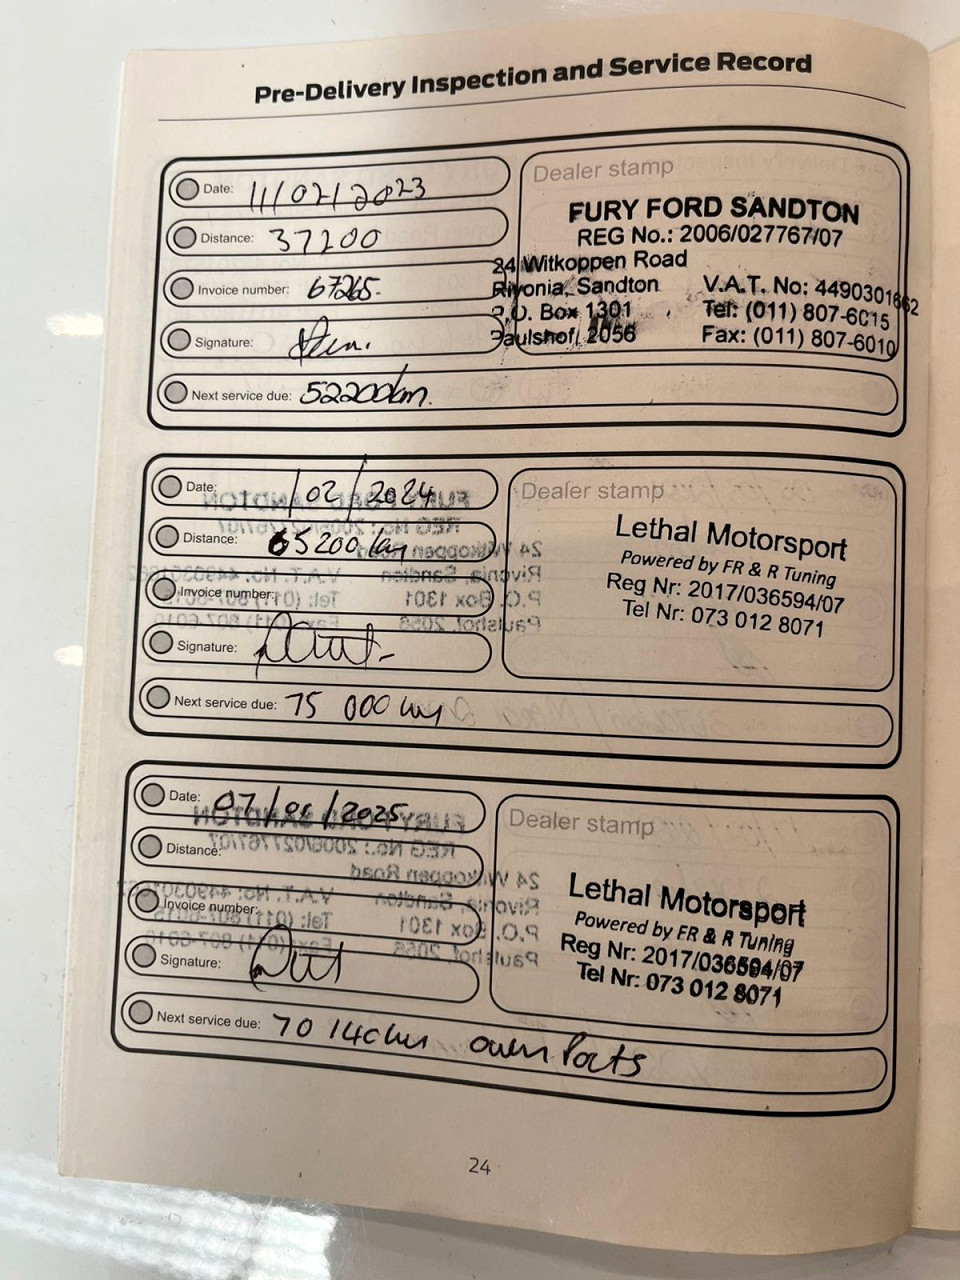 Pre-Delivery Inspection and Service Record
Date: 11/02/2023
Distance: 37200
Invoice number: 67265.
Signature:
Next service due: 52200km.
Dealer stamp
FURY FORD SANDTON
REG No.: 2006/027767/07
24 Witkoppen Road
Rivonia, Sandton V.A.T. No: 4490301662
P.O. Box 1301 Tel: (011) 807-6015
Paulshof, 2056 Fax: (011) 807-6010
Date: /02/2024
Distance: 65200 km
Invoice number:
Signature:
Next service due: 75 000 km
Dealer stamp
Lethal Motorsport
Powered by FR & R Tuning
Reg Nr: 2017/036594/07
Tel Nr: 073 012 8071
Date: 07/01/2025
Distance:
Invoice number:
Signature:
Next service due: 70 14 km own Parts
Dealer stamp
Lethal Motorsport
Powered by FR & R Tuning
Reg Nr: 2017/036594/07
Tel Nr: 073 012 8071
24